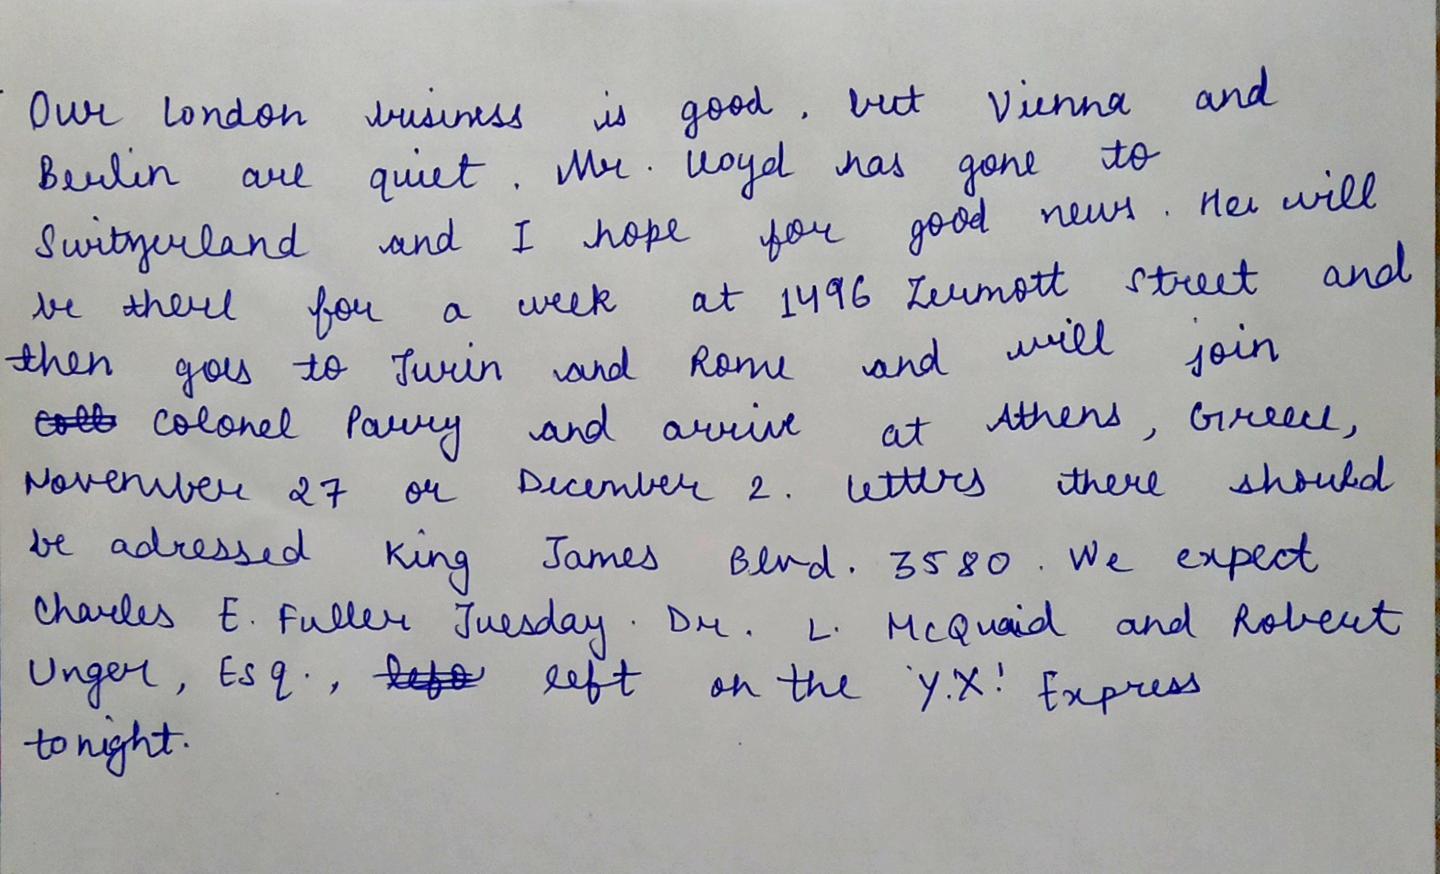 Our London business is good, but Vienna and
Berlin are quiet. Mr. Lloyd has gone to
Switzerland and I hope for good news. He will
be there for a week at 1496 Zermott Street and
then goes to Turin and Rome and will join
Colonel Parry and arrive at Athens, Greece,
November 27 or December 2. Letters there should
be adressed King James Blvd. 3580. We expect
Charles E. Fuller Tuesday. Dr. L. McQuaid and Robert
Unger, Esq., left on the 'Y.X.' Express
tonight.